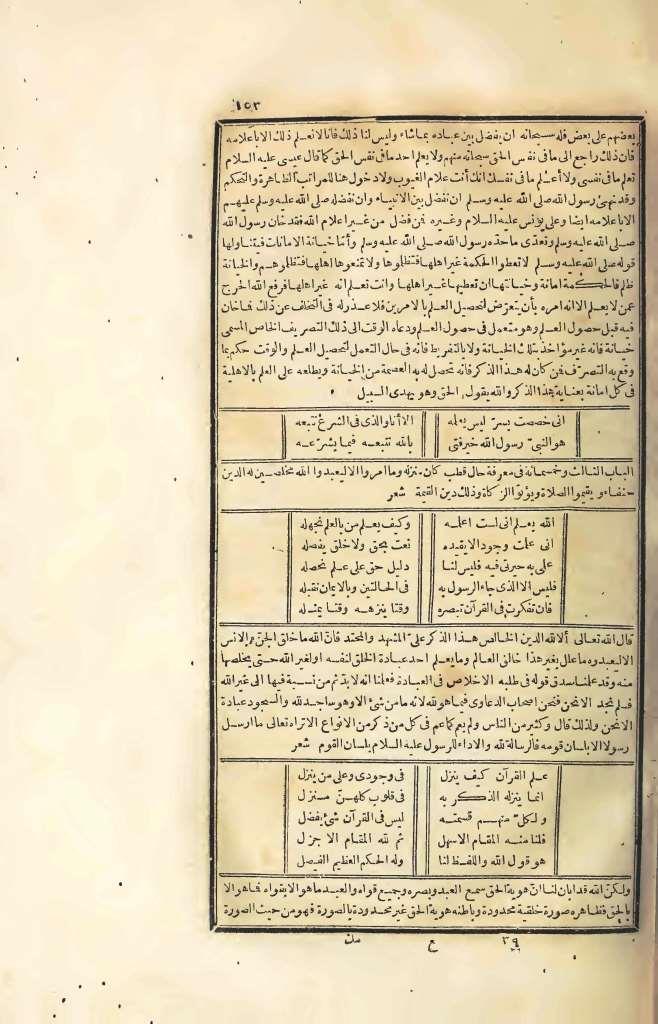 ١٥٣
بعضهم على بعض فله سبحانه ان يفضل بين عباده بما شاء وليس لنا ذلك فانا لا نعلم ذلك الا باعلامه
فان ذلك راجع الى ما فى نفس الحق سبحانه منهم ولا يعلم احد ما فى نفس الحق كما قال عيسى عليه السلام
تعلم ما فى نفسى ولا أعلم ما فى نفسك انك أنت علام الغيوب ولا دخول هنا للمراتب الظاهرة والتحكم
وقد نهى رسول الله صلى الله عليه وسلم ان نفضل بين الانبياء وان نفضله صلى الله عليه وسلم عليهم
الا باعلامه ايضا وعلى يونس عليه السلام وغيره فمن فضل من غير اعلام الله فقد خان رسول الله
صلى الله عليه وسلم وتعدى ما حده رسول الله صلى الله عليه وسلم وأما خيانة الامانات فيتناولها
قوله صلى الله عليه وسلم لا تعطوا الحكمة غير اهلها فتظلموها ولا تمنعوها اهلها فتظلموهم والخيانة
ظلم فالحكمة امانة وخيانتها ان تعطيها غير اهلها وانت تعلم انه غير اهلها فرفع الله الحرج
عمن لا يعلم الا انه امره بأن يتعرض لتحصيل العلم بالامر بن فلا عذر له فى التخلف عن ذلك فما خان
فيه قبل حصول العلم وهو متعمل فى حصول العلم ودعاه الوقت الى ذلك التصريف الخاص المسمى
خيانة فانه غير مؤاخذ بتلك الخيانة ولا بالتفريط فانه فى حال التعمل لتحصيل العلم والوقت حكم بما
وقع به التصرف فمن كان له هذا الذكر فانه تحصل له به العصمة من الخيانة ويطلعه على العلم بالاهلية
فى كل امانة بعناية هذا الذكر والله يقول الحق وهو يهدى السبيل
انى خصصت بسر ليس يعلمه الا أنا والذى فى الشرع نتبعه
هو النبى رسول الله خير فتى بالله نتبعه فيما يشرعه
الباب الثالث وخمسمائة فى معرفة حال قطب كان منزله وما امروا الا ليعبدوا الله مخلصين له الدين
حنفاء ويقيموا الصلاة ويؤتوا الزكاة وذلك دين القيمة شعر
الله يعلم انى لست اعلمه وكيف يعلم من بالعلم نجهله
انى علمت وجودا لا يقيده نعت بحق ولا خلق يفصله
على به حيرتى فيه فليس لنا دليل حق على علم نحصله
فليس الا الذى جاء الرسول به فى الحالتين وبالايمان نقبله
فان تفكرت فى القرآن تبصره وقتا ينزهه وقتا يمثله
قال الله تعالى ألا لله الدين الخالص هذا الذكر على المشهد والمحتد فان الله ما خلق الجن والانس
الا ليعبدوه ما علل بغير هذا خالق العالم وما يعلم احد عبادة الخلق لنفسه او لغير الله حتى يخلصها
منه وقد علمنا صدق قوله فى طلبه الاخلاص فى العبادة فعلمنا انه لا بد ثم من نسبة فيها الى غير الله
فلم نجد الا نحن فنحن اصحاب الدعاوى فيما هو لله لانه ما من شئ الا وهو ساجد لله والسجود عبادة
الا نحن ولذلك قال وكثير من الناس ولم يعم كما عم فى كل من ذكر من الانواع الا تراه تعالى ما ارسل
رسولا الا بلسان قومه فالرسالة لله والاداء للرسول عليه السلام بلسان القوم شعر
علم القرآن كيف ينزل فى وجودى وعلى من ينزل
انما ينزله الذكر به فى قلوب كلهن منزل
ولكل منهم قسمته ليس فى القرآن شئ يفضل
فلنا منه المقام الاسهل ثم لله المقام الاجزل
هو قول الله واللفظ لنا وله الحكم العظيم الفيصل
ولكن الله قد ابان لنا ان هوية الحق سمع العبد وبصره وجميع قواه والعبد ما هو الا بقواه فما هو الا
بالحق فظاهره صورة خلقية محدودة وباطنه هوية الحق غير محدودة بالصورة فهو من حيث الصورة
٣٩ ع مك